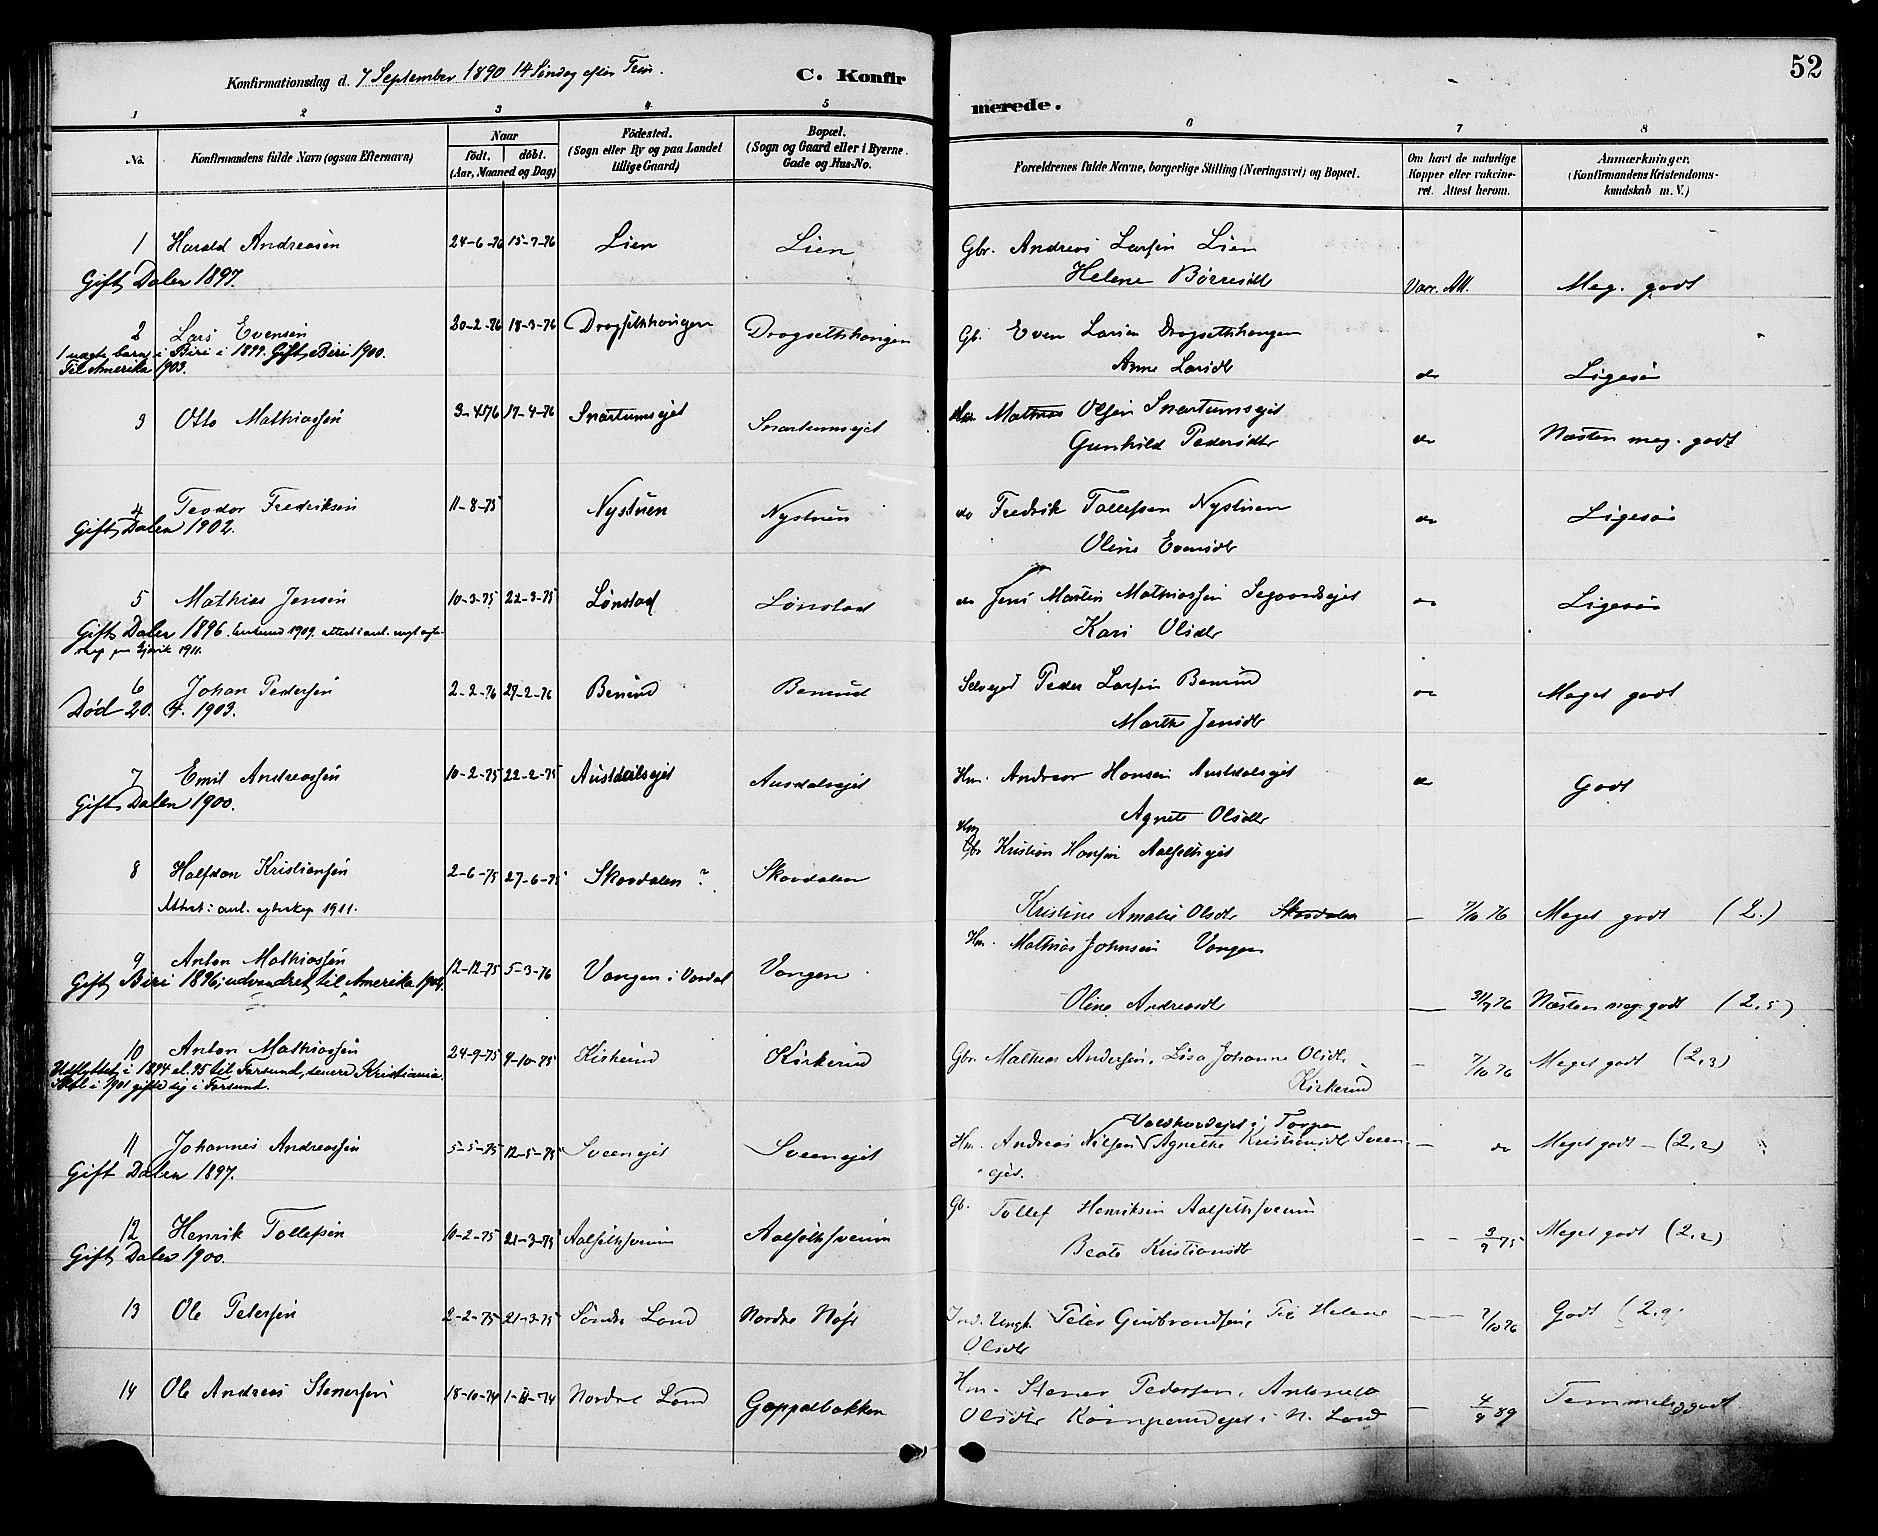 Konfirmationsdag d. 7 September 1890 14 Søndag efter Trin.
C. Konfir
merede.
52
1 2 3 4 5 6 7 8
No.
Konfirmandens fulde Navn (ogsaa Efternavn)
Naar
födt. döbt.
(Aar, Maaned og Dag)
Födested.
(Sogn eller By og paa Landet
tillige Gaard)
Bopæl.
(Sogn og Gaard eller i Byerne
Gade og Hus-No.
Forældrenes fulde Navne, borgerlige Stilling (Næringsvei) og Bopæl.
Om havt de naturlige
Kopper eller vakcine-
ret. Attest herom.
Anmærkninger.
(Konfirmandens Kristendoms-
kundskab m. V.)
1 Harald Andreasen 24-6-76 15-7-76 Lien Lien Gbr. Andreas Larsen Lien
Helene Børresdt Vacc. Att. Meg. godt
Gift, Dalen 1897.
2 Lars Evensen 20-2-76 18-3-76 Drogsethhaugen Drogsethhaugen Gb. Even Larsen Drogsethhaugen
1 uægte barn i Biri i 1899. Gift, Biri 1900.
Til Amerika 1903.
Anne Larsdt do Ligesaa
3 Otto Mathiassen 3-4-76 17-4-76 Snartumsejet Snartumsejet Hm. Mathias Olsen Snartumsejet
Gunhild Pedersdtr do Næsten meg. godt
4 Teodor Fredriksen 11-8-75 Nystuen Nystuen do Fredrik Tollefsen Nystuen do Ligesaa
Gift, Dalen 1902.
Oline Evensdt
5 Mathias Jensen 10-3-75 22-3-75 Lønstad Lønstad do Jens Martin Mathiassen Segaardsejet do Ligesaa
Gift, Dalen 1896. 1909. attest i anl. nyt egte-
skap paa Gjøvik 1911.
Kari Olsdtr
6 Johan Pedersen 2-2-76 27-2-76 Benrud Benrud Selvejer Peder Larsen Benrud do Meget godt
Død 20. 4. 1903.
Marthe Jensdt
7 Emil Andreassen 10-2-75 22-2-75 Austdalsejet Ausdalsejet Hm. Andreas Hansen Austdalsejet do Godt
Gift, Dalen 1900.
Agnete Olsdtr
8 Halfdan Kristiansen 2-6-75 27-6-75 Skovdalen ? Skovdalen Hm Gbr Kristian Hansen Aalsethejet
Attest i anl. egteskap 1911.
Kristine Amalie Olsdtr Skovdalen — 7/10 76 Meget godt (2.)
9 Anton Mathiassen 12-12-75 5-3-76 Vangen i Vardal Vangen Hm. Mathias Johnsen Vangen
Gift, Biri 1896; udvandret til Amerika
Oline Andreasdt — 31/7 76 Næsten meg. godt (2,5)
10 Anton Mathiassen 24-9-75 4-10-75 Kirkerud Kirkerud Gbr. Mathias Andersen, Lisa Johanne Olsdt.
Kirkerud — 7/10 76 Meget godt (2,3)
Udflyttet i 1894 el. 95 til Farsund, senere Kristiania.
Skal i 1901 gifte sig i Farsund.
11 Johannes Andreassen 5-5-75 12-5-75 Sveenejet Sveenejet Hm. Andreas Nilsen Agnethe Kristiansdt Sveen-
ejet. — do Meget godt — (2,2)
Gift Dalen 1897.
12 Henrik Tollefsen 10-2-75 21-3-75 Aalsethsveum Aalsethsveum Gb. Tollef Henriksen Aalsethsveum
Gift, Dalen 1900.
Beate Kristiansdt — - 3/9 75 Meget godt (2,2)
13 Ole Petersen 2-2-75 21-3-75 Søndre Land Nordre Nøss Ind. Ungk. Peter Gudbrandsen, Pie Helene
Olsdtr — — 7/10 76 Godt (2,9)
14 Ole Andreas Stenersen 18-10-74 1-11-74 Nordre Land Gappelbakken Hm. Stener Pedersen, Antonette
Olsdtr i N. Land — 4/9 89 Temmelig godt